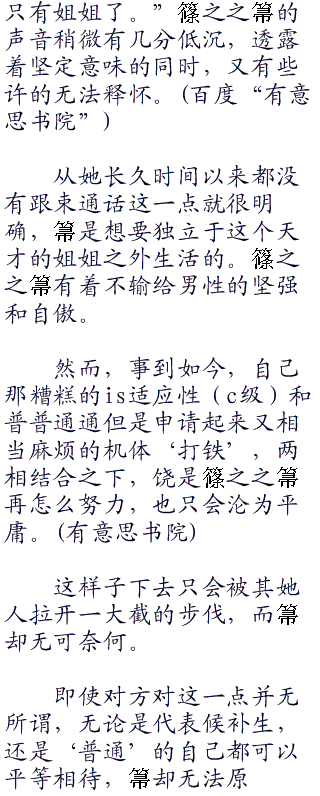 只有姐姐了。”篠之之箒的
声音稍微有几分低沉，透露
着坚定意味的同时，又有些
许的无法释怀。(百度“有意
思书院”)
从她长久时间以来都没
有跟束通话这一点就很明
确，箒是想要独立于这个天
才的姐姐之外生活的。篠之
之箒有着不输给男性的坚强
和自傲。
然而，事到如今，自己
那糟糕的is适应性（c级）和
普普通通但是申请起来又相
当麻烦的机体‘打铁’，两
相结合之下，饶是篠之之箒
再怎么努力，也只会沦为平
庸。(有意思书院)
这样子下去只会被其她
人拉开一大截的步伐，而箒
却无可奈何。
即使对方对这一点并无
所谓，无论是代表候补生，
还是‘普通’的自己都可以
平等相待，箒却无法原